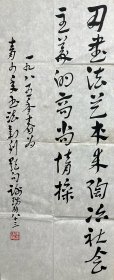 用书法艺术来陶冶社会
主义的高尚情操
一九八五年春为
青少年书法报刊题句